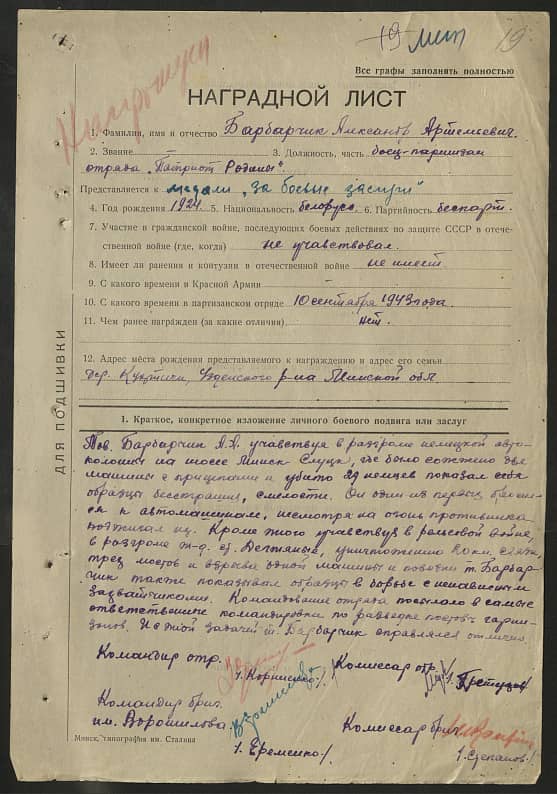 19 19
Все графы заполнять полностью
НАГРАДНОЙ ЛИСТ
1. Фамилия, имя и отчество Барбарчик Александр Артемьевич.
2. Звание 3. Должность, часть боец-партизан
отряда "Патриот Родины".
Представляется к медали "За боевые заслуги"
4. Год рождения 1924 5. Национальность белорус. 6. Партийность беспарт.
7. Участие в гражданской войне, последующих боевых действиях по защите СССР в отече-
ственной войне (где, когда) не учавствовал.
8. Имеет ли ранения и контузии в отечественной войне не имеет
9. С какого времени в Красной Армии
10. С какого времени в партизанском отряде 10 сентября 1943 года.
11. Чем ранее награжден (за какие отличия) нет.
12. Адрес места рождения представляемого к награждению и адрес его семьи
дер. Узденского р-на Минской обл.
ДЛЯ ПОДШИВКИ
1. Краткое, конкретное изложение личного боевого подвига или заслуг
Тов. Барбарчик А.А. учавствуя в разгроме немецкой авто-
колонны на шоссе Минск Слуцк, где было сожжено две
машины с прицепами и убито 29 немцев показал себя
образцы бесстрашия, смелости. Он один из первых бросил-
ся к автомашинам, несмотря на огонь противника
поджигал их. Кроме этого учавствуя в рельсовой войне,
в разгроме ж-д. ст. уничтожению связи,
трех мостов и взрыва одной машины и т. Барбар-
чик также показывал образцы в борьбе с ненавистными
захватчиками. Командование отряда посылало в самые
ответственные командировки по разведке гарни-
зонов. И с этой задачей т. Барбарчик справлялся отлично.
Командир отр. Комиссар отр.
/Корниенко/
Командир бриг.
им. Ворошилова Комиссар бриг.
/Еременко/ /Степанов/
Минск, типография им. Сталина